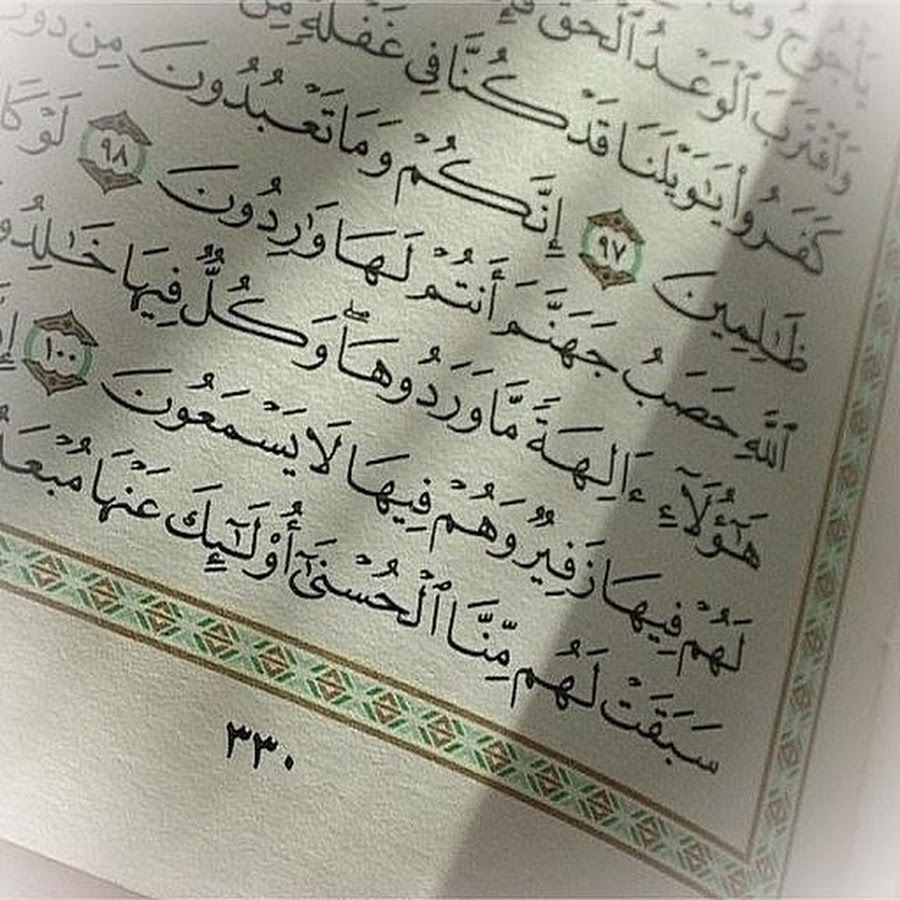 يَأْجُوجُ وَمَا
وَٱقْتَرَبَ ٱلْوَعْدُ ٱلْحَقُّ فَإِ
كَفَرُوا۟ يَٰوَيْلَنَا قَدْ كُنَّا فِى غَفْلَةٍ مِّنْ
ظَٰلِمِينَ ٩٧ إِنَّكُمْ وَمَا تَعْبُدُونَ مِن دُونِ
ٱللَّهِ حَصَبُ جَهَنَّمَ أَنتُمْ لَهَا وَٰرِدُونَ ٩٨ لَوْ كَا
هَٰٓؤُلَآءِ ءَالِهَةً مَّا وَرَدُوهَا ۖ وَكُلٌّ فِيهَا خَٰلِدُو
لَهُمْ فِيهَا زَفِيرٌ وَهُمْ فِيهَا لَا يَسْمَعُونَ ١٠٠ إِ
سَبَقَتْ لَهُم مِّنَّا ٱلْحُسْنَىٰٓ أُو۟لَٰٓئِكَ عَنْهَا مُبْعَدُ
٣٣٠